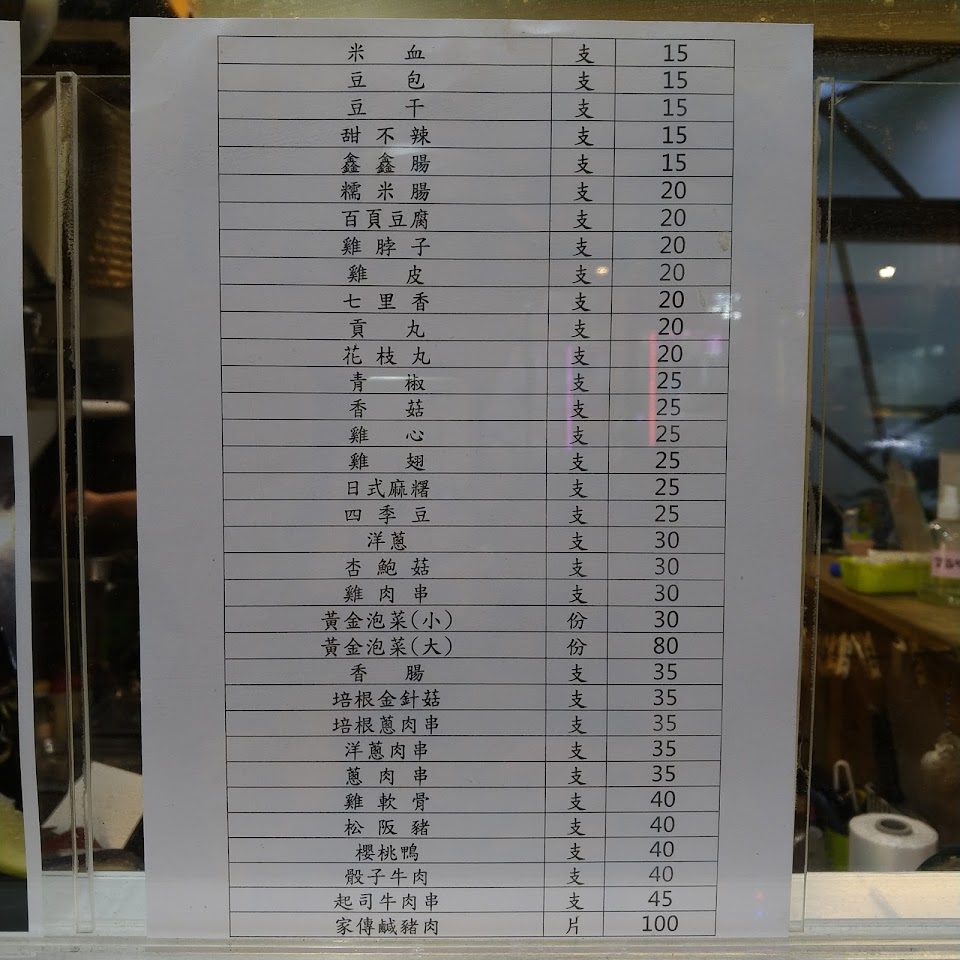 米血 支 15
豆包 支 15
豆干 支 15
甜不辣 支 15
鑫鑫腸 支 15
糯米腸 支 20
百頁豆腐 支 20
雞脖子 支 20
雞皮 支 20
七里香 支 20
貢丸 支 20
花枝丸 支 20
青椒 支 25
香菇 支 25
雞心 支 25
雞翅 支 25
日式麻糬 支 25
四季豆 支 25
洋蔥 支 30
杏鮑菇 支 30
雞肉串 支 30
黃金泡菜(小) 份 30
黃金泡菜(大) 份 80
香腸 支 35
培根金針菇 支 35
培根蔥肉串 支 35
洋蔥肉串 支 35
蔥肉串 支 35
雞軟骨 支 40
松阪豬 支 40
櫻桃鴨 支 40
骰子牛肉 支 40
起司牛肉串 支 45
家傳鹹豬肉 片 100